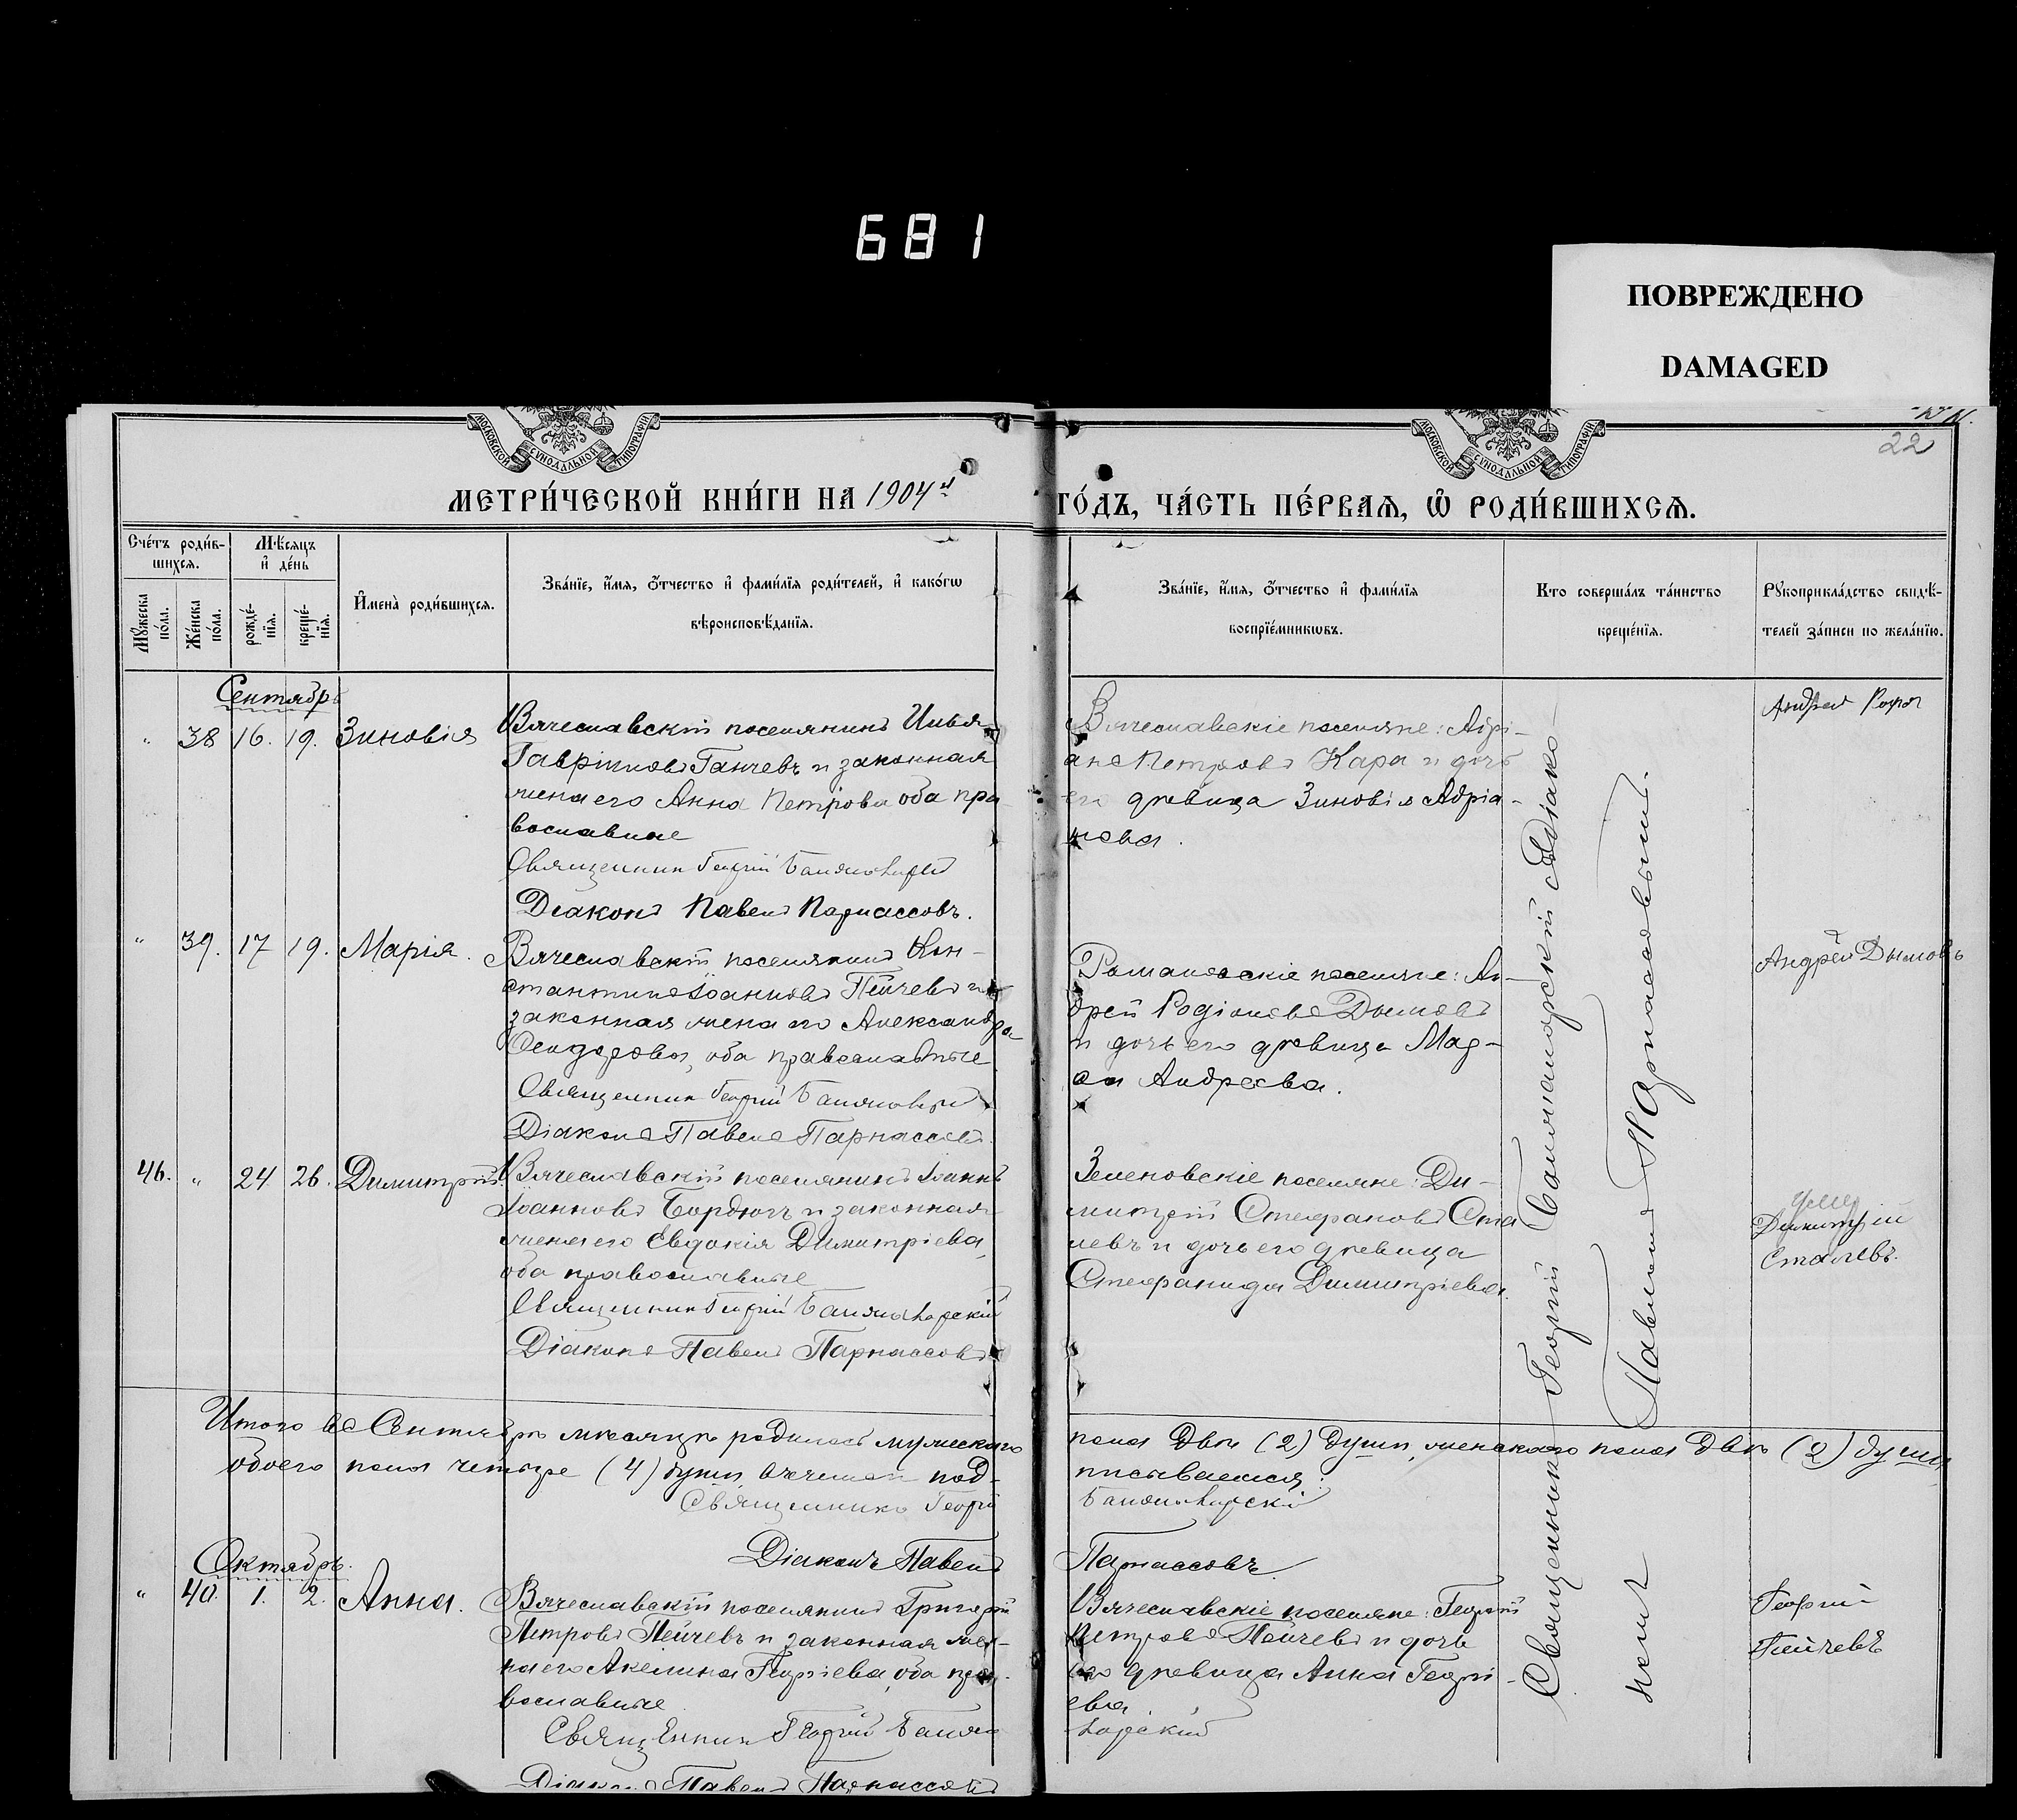 681
ПОВРЕЖДЕНО
DAMAGED
22
МОСКОВСКОЙ СѴНОДАЛЬНОЙ ТИПОГРАФІИ
МОСКОВСКОЙ СѴНОДАЛЬНОЙ ТИПОГРАФІИ
МЕТРИ́ЧЕСКОЙ КНИ́ГИ НА 1904й ГО́ДЪ, ЧА́СТЬ ПЕ́РВАѦ, Ѡ҆ РОДИ́ВШИХСѦ.
Сче́тъ роди́в-
шихсѧ.
Мꙋ́жеска по́ла.
Же́нска по́ла.
Мѣ́сѧцъ
и҆ де́нь
рожде́-
нїѧ.
креще́-
нїѧ.
И҆мена̀ роди́вшихсѧ.
Зва́нїе, и҆́мѧ, ѻ҆́тчество и҆ фами́лїѧ роди́телей, и҆ како́гѡ
вѣроисповѣ́данїѧ.
Зва́нїе, и҆́мѧ, ѻ҆́тчество и҆ фами́лїѧ
воспрїе́мникѡвъ.
Кто соверша́лъ та́инство
креще́нїѧ.
Рꙋкоприкла́дство свидѣ́-
телей за́писи по жела́нїю.
Сентябрь
" 38 16. 19. Зиновія
Вячеславскій поселянинъ Илья
Гавріиловъ Ганчевъ и законная
жена его Анна Петрова оба пра-
вославные
Священникъ Георгій
Діаконъ Павелъ Парнассовъ.
Вячеславскіе поселяне: Адрі-
анъ Петровъ Кара и дочь
его дѣвица Зиновія Адріа-
нова.
Андрей
" 39. 17 19. Марія.
Вячеславскій поселянинъ Кон-
стантинъ Іоанновъ Пейчевъ и
законная жена его Александра
Ѳеодорова, оба православные
Священникъ Георгій
Діаконъ Павелъ Парнассовъ
Романовскіе поселяне: Ан-
дрей Родіоновъ Дымовъ
и дочь его дѣвица Мар-
ѳа Андреева.
Андрей Дымовъ
46. " 24 26. Димитрій.
Вячеславскій поселянинъ Іоаннъ
Іоанновъ Бордюгъ и законная
жена его Евдокія Димитріева,
оба православные
Священникъ Георгій
Діаконъ Павелъ Парнассовъ
Зеленовскіе поселяне: Ди-
митрій Стефановъ Ста
левъ и дочь его дѣвица
Стефанида Димитріева.
Димитрій
Сталевъ.
Итого въ Сентябрѣ мѣсяцѣ родилось мужескаго пола двѣ (2) души, женскаго пола двѣ (2) души
обоего пола четыре (4) души въ чемъ и под- писываемся:
Священникъ Георгій
Діаконъ Павелъ Парнассовъ.
Октябрь.
" 40. 1. 2. Анна.
Вячеславскій поселянинъ Григорій
Петровъ Пейчевъ и законная же-
на его Акелина Георгіева, оба пра-
вославные
Священникъ Георгій
Діаконъ Павелъ Парнассовъ
Вячеславскіе поселяне: Георгій
Петровъ Пейчевъ и дочь
его дѣвица Анна Георгі-
ева.
Георгій
Пейчевъ
Священникъ Георгій съ Діако-
номъ Павломъ Парнассовымъ.